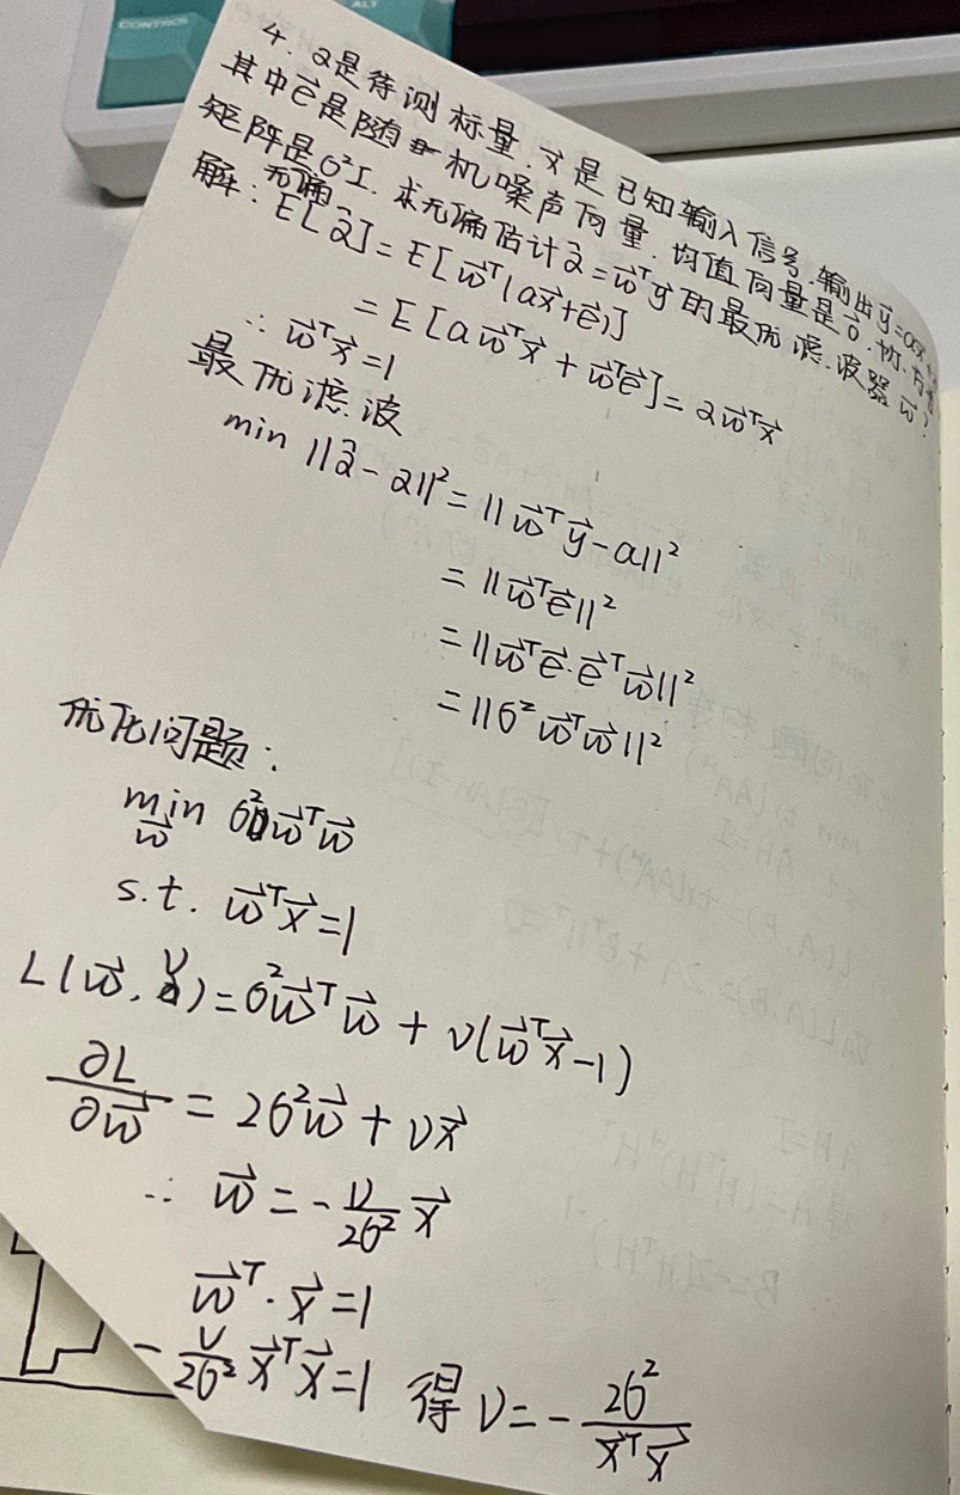 CONTROL
ALT
4. a是待测标量. x⃗是已知输入信号. 输出y⃗=ax⃗+
其中e⃗是随机噪声向量. 均值向量是0⃗. 协方差
矩阵是σ²I. 求无偏估计â=w⃗ᵀy⃗的最优滤波器w⃗?
无偏
解: E[â]=E[w⃗ᵀ(ax⃗+e⃗)]
=E[aw⃗ᵀx⃗+w⃗ᵀe⃗]=aw⃗ᵀx⃗
∴ w⃗ᵀx⃗=1
最优滤波
min ||â-a||²=||w⃗ᵀy⃗-a||²
=||w⃗ᵀe⃗||²
=||w⃗ᵀe⃗·e⃗ᵀw⃗||²
=||σ²w⃗ᵀw⃗||²
优化问题:
min σ²w⃗ᵀw⃗
w⃗
s.t. w⃗ᵀx⃗=1
L(w⃗,ν)=σ²w⃗ᵀw⃗+ν(w⃗ᵀx⃗-1)
∂L/∂w⃗=2σ²w⃗+νx⃗
∴ w⃗=-ν/2σ² x⃗
w⃗ᵀ·x⃗=1
-ν/2σ² x⃗ᵀx⃗=1 得 ν=-2σ²/x⃗ᵀx⃗